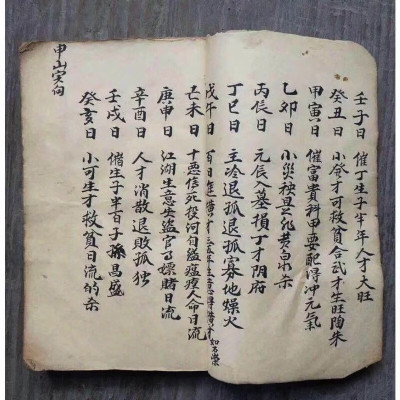 壬子日　催丁生子半年人才大旺
癸丑日　小發才可救貧合武才生旺陶朱
甲寅日　催富貴科甲要配得冲元氣
乙卯日　小災秧且死黄泉杀
丙辰日　元辰入墓損丁才阴府
丁巳日　主冷退孤退孤寡地燥火
戊午日
己未日　十惡 死投河自縊瘟瘦人命日流
庚申日　江湖生意失盗官司嫖賭日流
辛酉日　人才消散退敗孤独
壬戌日　催生子半百子孫昌盛
癸亥日　小可生才救貧日流的杀
申山寅向